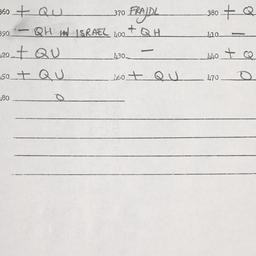 360 + QU 370 FRAJDL 380 + Q
390 - QH IN ISRAEL 400 + QH 410 -
420 + QU 430 - 440 + Q
450 + QU 460 + QU 470 0
480 0